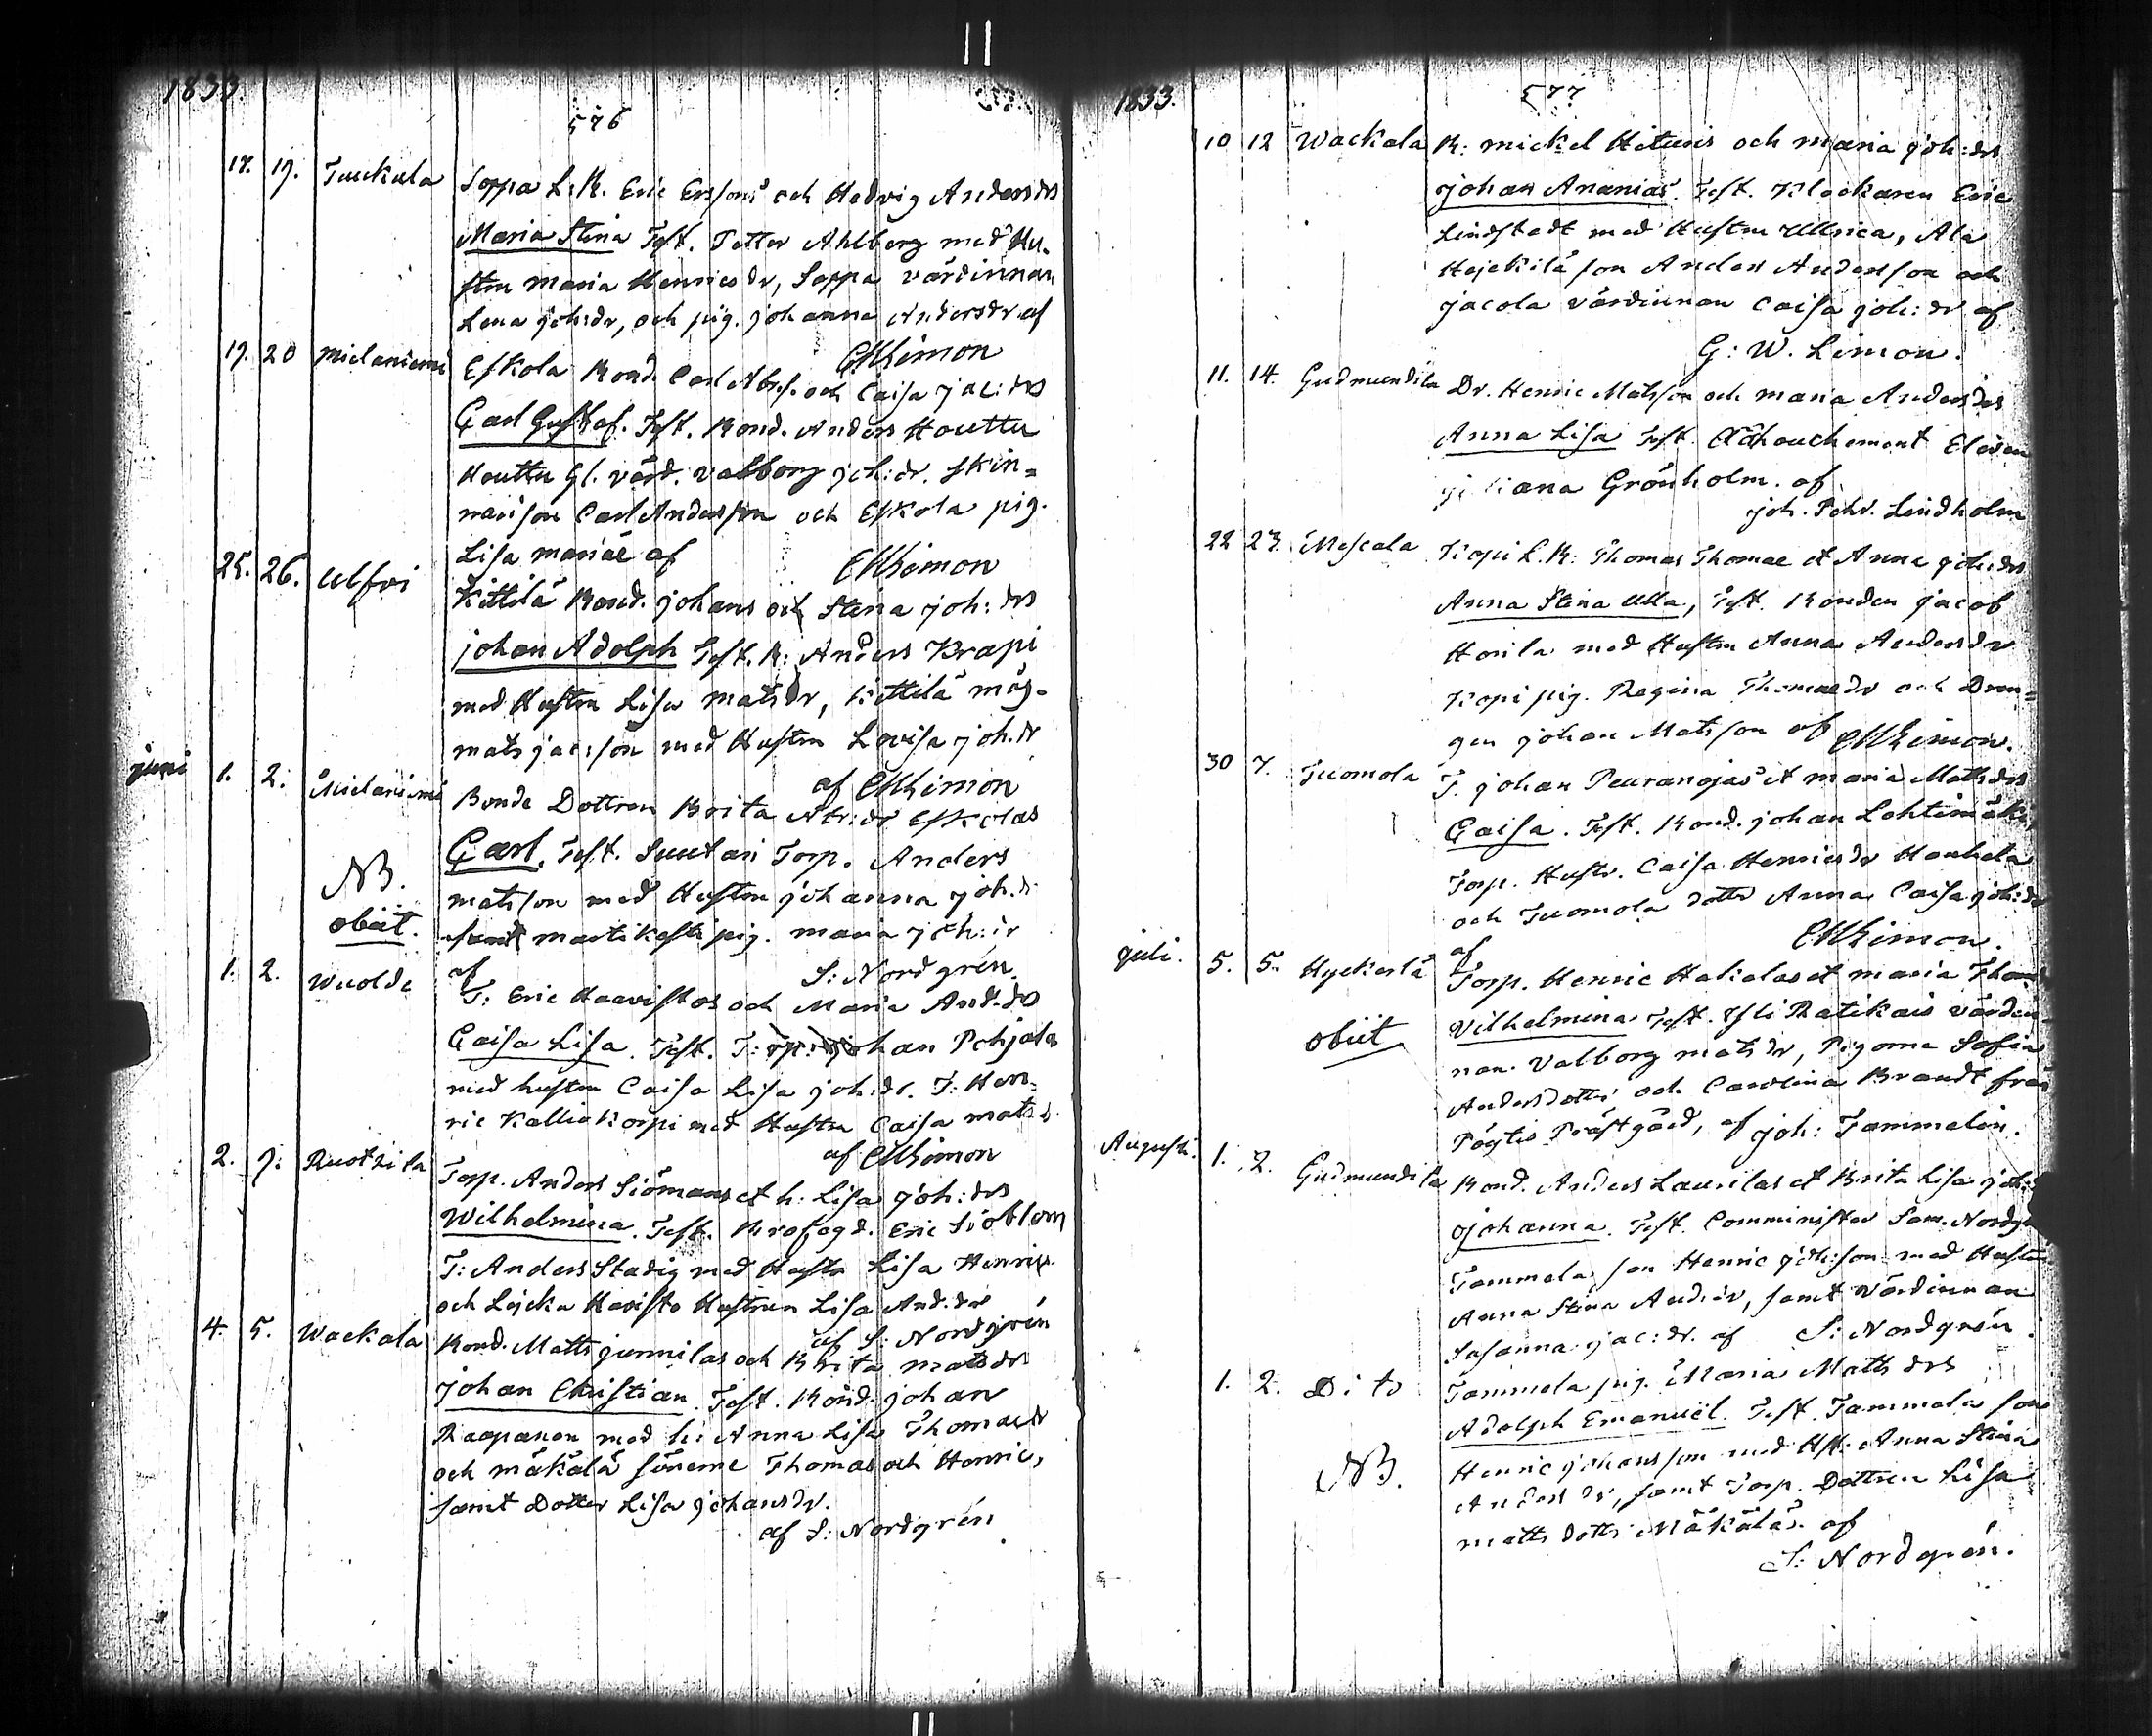 1833.
576
17. 19. Tuukala Soppa L. B. Eric Erssons och Hedvig Andersdrs
Maria Stina Test. Petter Ahlberg med Hu-
stru Maria Henricsdr, Soppa värdinnan
Lena joh:dr, och pig. johanna Andersdr af
GWLimon
19. 20 Mielaniemi Eskola Bond. Carl Abr:s. och Caisa jac:drs
Carl Gustaf. Test. Bond. Anders Houttu
Houttu Gl. värd. Valborg joh:dr. Skin-
nari son Carl Andersson och Eskola pig.
Lisa mariae af GWLimon
25. 26. Kittilä Bond. johans och Stina joh:drs
johan Adolph Test. B: Anders Krapi
med Hustru Lisa matsdr, Kittilä måg-
mats jacsson med Hustru Lovisa joh.dr
af GWLimon
juni 1. 2. Mielaniemi Bonde Dottren Brita Abr:dr Eskolas
Carl. Test. Suutari Torp. Anders
NB. matsson med Hustru johanna joh.dr
obiit. samt martikesti pig. maria joh:dr
af S: Nordgrén.
1. 2. Wuolde T: Eric Haavistos och Maria And.drs
Caisa Lisa. Test. T: johan Pohjola
med hustru Caisa Lisa joh:dr. T: Hen-
ric Kalliokorpi med Hustru Caisa mats
af GWLimon
2. 9. Torp. Anders Siömans et h: Lisa joh:drs
Wilhelmina. Test. Brofogd. Eric Siöblom
T: Anders Stadig med Hustr Lisa Henrics
och Havisto Hustrun Lisa And.dr
af S: Nordgrén
4. 5. Wackala Bond. Matts junnilas och Brita matsdrs
johan Christian. Test. Bond. johan
Raapanen med h: Anna Lisa Thomaedr
och mäkälä sönerne Thomas och Henric,
samt Dotter Lisa johansdr.
af S: Nordgrén
1833.
577
10 12 Wackala B: mickel Hituris och maria joh:drs
johan Ananias. Test. Klockaren Eric
Lindstedt med Hustru Ullrica, Ala
Hejckilä son Anders Andersson och
jacola värdinnan Caisa joh:dr af
G: W. Limon.
11. 14. Gudmundila Dr. Henric Matsson och maria Andersdrs
Anna Lisa Test. Accouchement Eleven
Grönholm. af
joh. Pehr. Lindholm
22 23. Mescala Kopi L. B: Thomas Thomae et Anna joh:drs
Anna Stina Ulla, Test. Bonden jacob
med Hustru Anna Andersdr
Kopi pig. Regina Thomaedr och Dren-
gen johan Matsson af GWLimon.
30 7. Tuomola T. johan Peuranojas et maria Matsdrs
Caisa. Test. Bond. johan Lohtimäki,
Torp. Hustr. Caisa Henricsdr Hanhela
och Tuomola dotter Anna Caisa joh:dr
af GWLimon.
juli. 5. 5. Hyckerlä Torp. Henric Hakalas et maria
Vilhelmina Test. Yli Ratikais värdin-
obiit nan Valborg matsdr, Pigorna Sofia
Andersdotter och Carolina Brandt från
Pöytis Prästgård, af joh: Tammelin.
Augusti. 1. 2. Gudmundila Bond. Anders Laurilas et Brita Lisa joh:
johanna. Test. Comminister Sam. Nordg
Tammela son Henric joh:son med Hustru
Anna Stina And:dr, samt värdinnan
Susanna jac:dr. af S: Nordgrén.
1. 2. Dito Tammela pig. Maria Matts drs
Adolph Emanuël. Test. Tammela son
NB. Henric johansson med Hst. Anna Stina
Anders dr, samt Torp. Dottren Lisa
matts dotter Mäkäläs. af
S: Nordgrén.